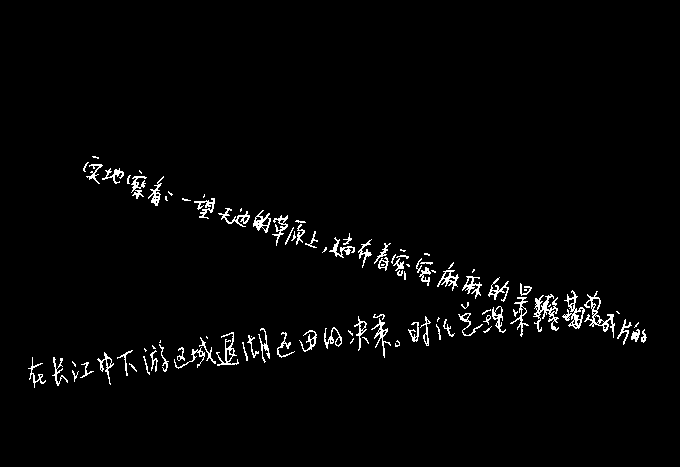 实地察看:一望天边的草原上,遍布着密密麻麻的鼠成片的
在长江中下游区域退湖还田的决策。时任总理朱